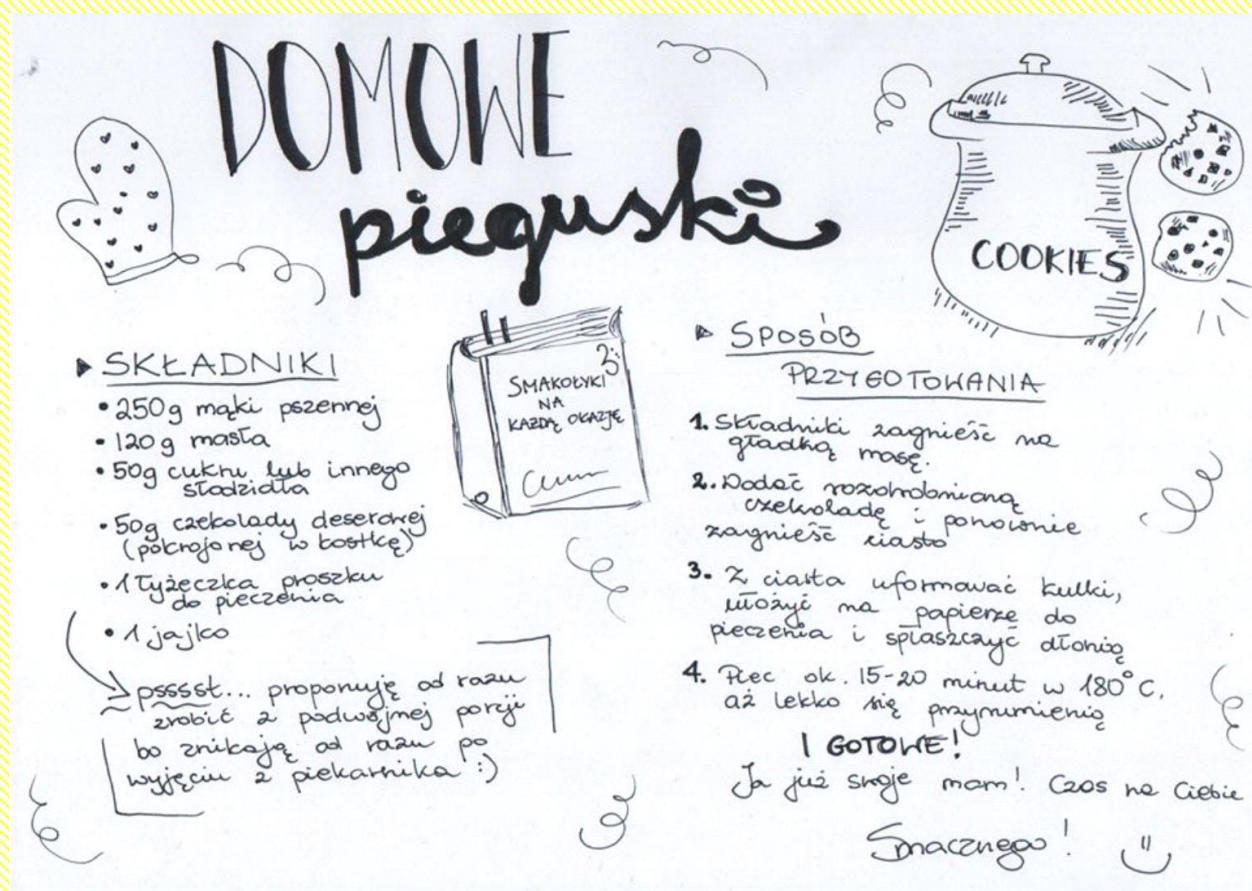 DOMOWE
pieguski
COOKIES
SKŁADNIKI
• 250g mąki pszennej
• 120g masła
• 50g cukru lub innego
słodzidła
• 50g czekolady deserowej
(pokrojonej w kostkę)
• 1 łyżeczka proszku
do pieczenia
• 1 jajko
psssst... proponuję od razu
zrobić z podwójnej porcji
bo znikają od razu po
wyjęciu z piekarnika :)
SMAKOŁYKI
NA
KAŻDĄ OKAZJĘ
SPOSÓB
PRZYGOTOWANIA
1. Składniki zagnieść na
gładką masę.
2. Dodać rozdrobnioną
czekoladę i ponownie
zagnieść ciasto
3. Z ciasta uformować kulki,
ułożyć na papierze do
pieczenia i spłaszczyć dłonią
4. Piec ok. 15-20 minut w 180°C,
aż lekko się przyrumienią
I GOTOWE!
Ja już swoje mam! Czas na Ciebie
Smacznego!